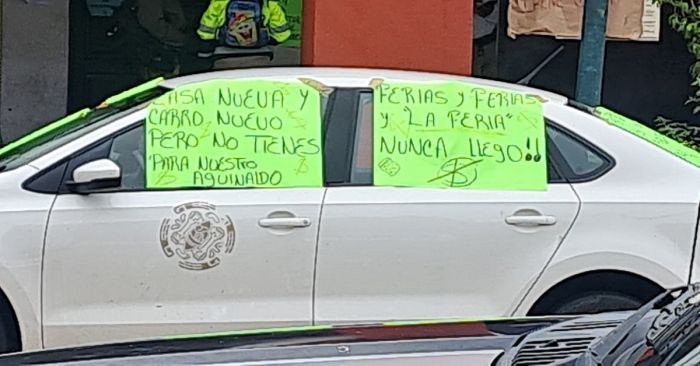 CASA NUEVA Y
CARRO NUEVO
PERO NO TIENES
PARA NUESTRO
AGUINALDO
FERIAS Y FERIAS
Y "LA FERIA"
NUNCA LLEGO!!